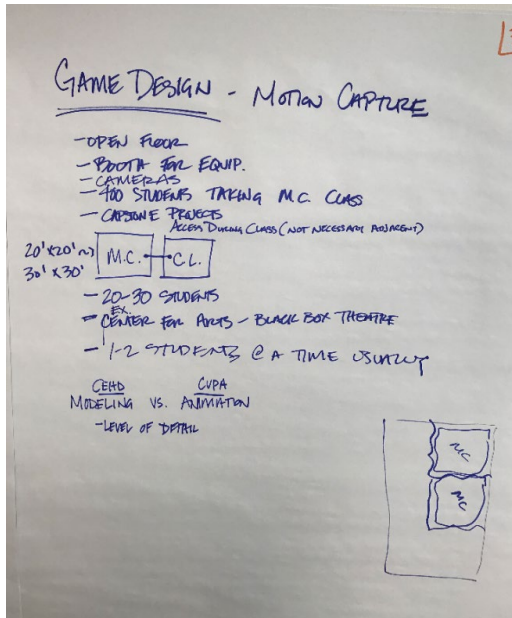 GAME DESIGN - MOTION CAPTURE
- OPEN FLOOR
- BOOTH FOR EQUIP.
- CAMERAS
- 400 STUDENTS TAKING M.C. CLASS
- CAPSTONE PROJECTS
ACCESS DURING CLASS (NOT NECESSARY ADJACENT)
20' X 20' ~)
30' X 30'
M.C.
C.L.
- 20-30 STUDENTS
EX.
- CENTER FOR ARTS - BLACK BOX THEATRE
- 1-2 STUDENTS @ A TIME USUALLY
CEHD CVPA
MODELING VS. ANIMATION
- LEVEL OF DETAIL
MC
MC